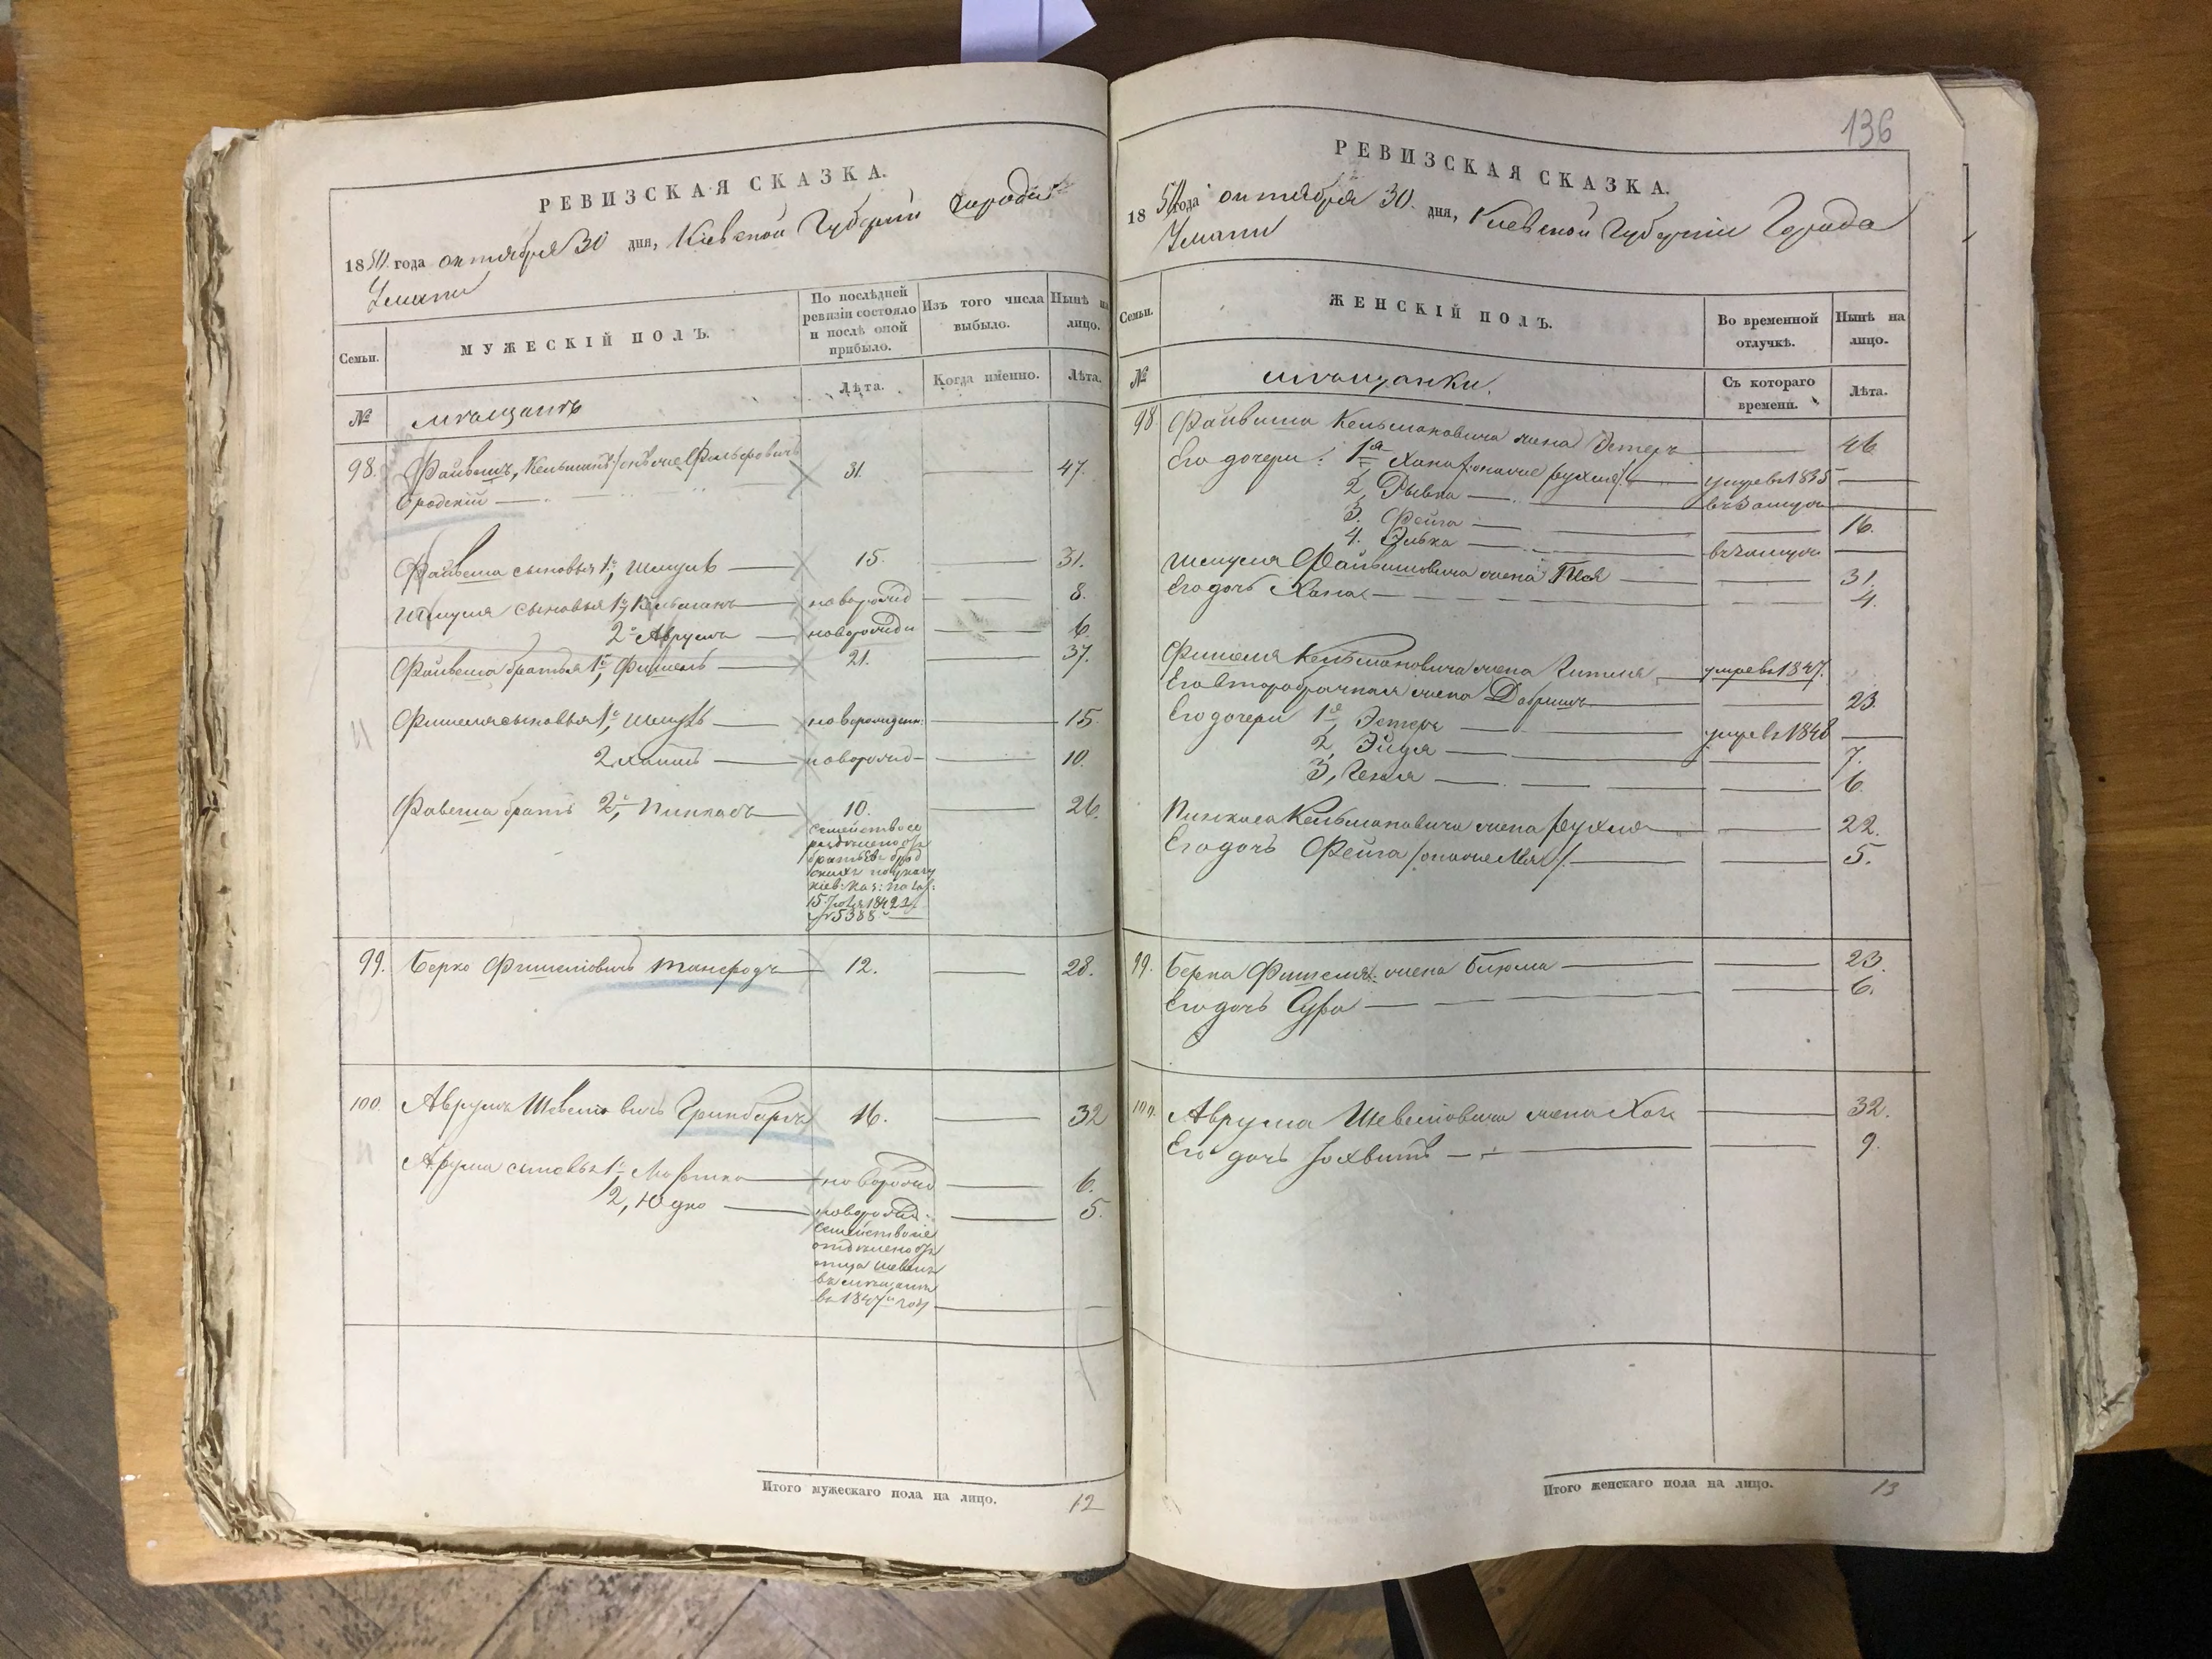 РЕВИЗСКАЯ СКАЗКА.
1850 года октября 30 дня, Кіевской Губерніи Города
Умани
Семьи.
МУЖЕСКІЙ ПОЛЪ.
По послѣдней ревизіи состояло и послѣ оной прибыло.
Изъ того числа выбыло.
Нынѣ на лицо.
№
мѣщанъ
Лѣта.
Когда именно.
Лѣта.
98. Файвишъ, Кельманъ
Бродскій 31. 47.
Файвиша сыновья 1й, Шмуль 15. 31.
Шмуля сыновья 1й, Кельманъ новорожд 8.
2й Аврумъ новорожден 6.
Файвиша братья 1й, Фишель 21. 37.
Фишеля сыновья 1й, Шмуль новорожден: 15.
2 новорожд 10.
Фавиша братъ 2й, Пинхасъ 10. 26.
семейство сіе
братьевъ Брод
скихъ по указу
Кіев: Каз: Палат:
15 1842 г
№ 5388
99. Берко Фишелiовичъ 12. 28.
100. Аврумъ Гринбергъ 16. 32
Аврума сыновья 1й, Мошко новорожд 6.
2, Юдко новорожд: 5.
семейство сіе
отдѣлено отъ
отца
въ 1847м году
Итого мужескаго пола на лицо. 12
136
РЕВИЗСКАЯ СКАЗКА.
1850 года октября 30 дня, Кіевской Губерніи Города
Умани
Семьи.
ЖЕНСКІЙ ПОЛЪ.
Во временной отлучкѣ.
Нынѣ на лицо.
№
мѣщанки.
Съ котораго времени.
Лѣта.
98 Файвиша Кельмановича жена Эстеръ 46
Его дочери: 1я Хана /: онаже Рухля :/ умре въ 1835
2, Рывка въ замуж
3. Фейга 16.
4. Зивка въ замуж
Шмуля Файвишовича жена Песя 31.
Его дочь Хана 4.
Фишеля Кельмановича жена Гитля умре въ 1847.
Его второбрачная жена Добрышъ 23.
Его дочери 1я, Эстеръ умре въ 1848
2, 7.
3, Геня 6.
Пинхаса Кельмановича жена Рухля 22.
Его дочь Фейга 5.
99. Берка Фишеля жена Блюма 23.
Его дочь Сура 6.
100. Аврума жена Хая 32.
Его дочь Іохвитъ 9.
Итого женскаго пола на лицо. 13